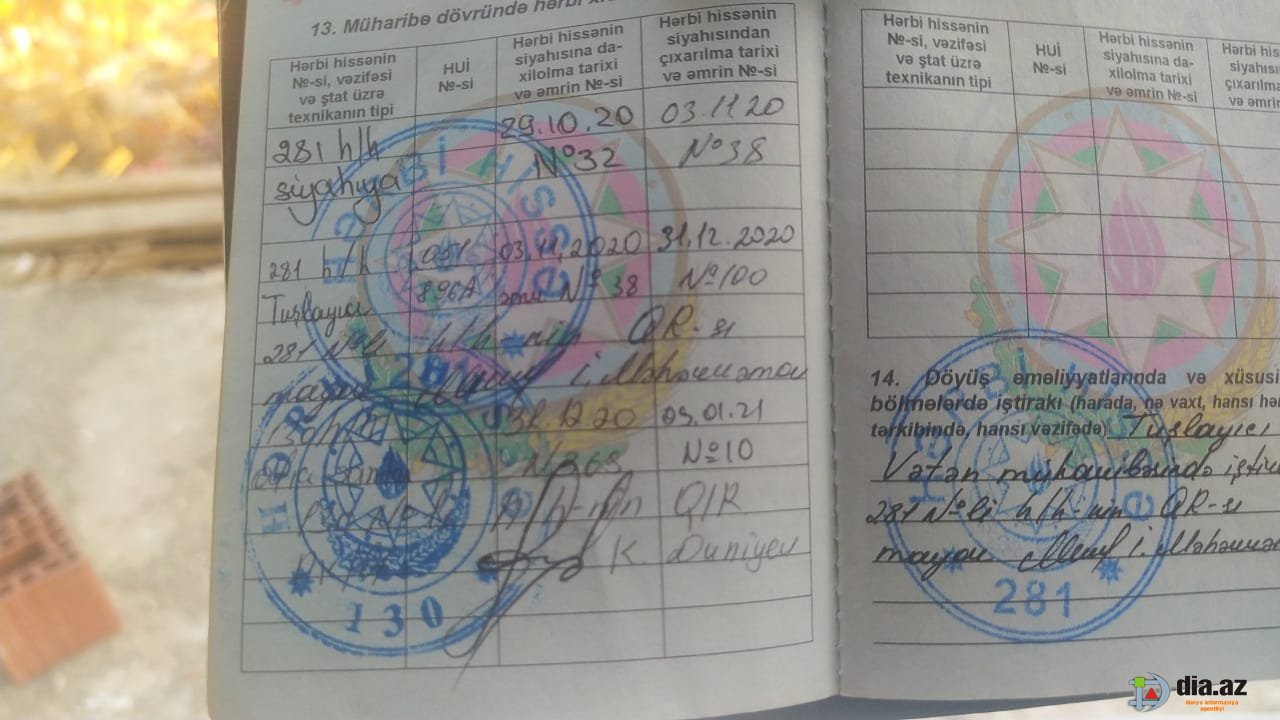 13. Müharibə dövründə hərbi
Hərbi hissənin №-si, vəzifəsi və ştat üzrə texnikanın tipi
HUİ №-si
Hərbi hissənin siyahısına da-xilolma tarixi və əmrin №-si
Hərbi hissənin siyahısından çıxarılma tarixi və əmrin №-si
281 h/h 29.10.20 03.11.20
siyahıya №32 №38
281 h/h 051 03.11.2020 31.12.2020
Tuşlayıcı 896A əmr №38 №100
281 №li h/h-nin QR-sı
mayor İ. Məhəmmədov
31.12.20 09.01.21
№10
h/h-nin QR
K.
HƏRBİ HİSSƏ
281
130
Hərbi hissənin №-si, vəzifəsi və ştat üzrə texnikanın tipi
HUİ №-si
Hərbi hissənin siyahısına da-xilolma tarixi və əmrin №-si
Hərbi
çıxarılma
və əmrin
14. Döyüş əməliyyatlarında və xüsusi
bölmələrdə iştirakı (harada, nə vaxt, hansı
tərkibində, hansı vəzifədə) Tuşlayıcı
Vətən müharibəsində
281 №li h/h-nin QR-sı
mayor İ.
281
dia.az
dünya informasiya
agentliyi